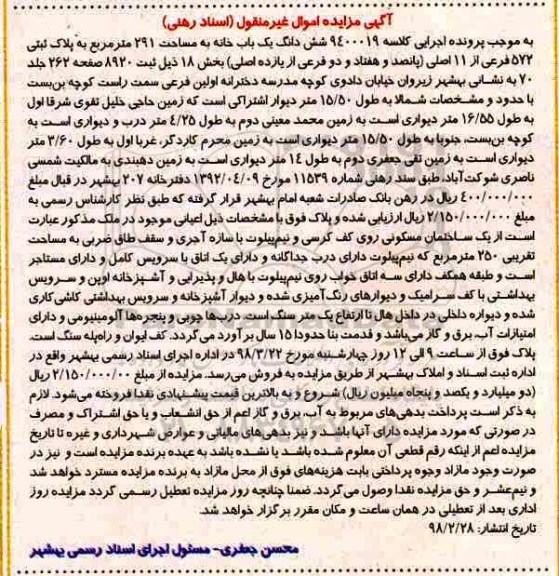 آگهی مزایده اموال غیرمنقول (اسناد رهنی)
به موجب پرونده اجرایی کلاسه ۹۴۰۰۰۱۹ شش دانگ یک باب خانه به مساحت ۲۹۱ مترمربع به پلاک ثبتی
۵۷۲ فرعی از ۱۱ اصلی (پانصد و هفتاد و دو فرعی از یازده اصلی) بخش ۱۸ ذیل ثبت ۸۹۲۰ صفحه ۲۶۲ جلد
۷۰ به نشانی بهشهر زیروان خیابان دادوی کوچه مدرسه دخترانه اولین فرعی سمت راست کوچه بن‌بست
با حدود و مشخصات شمالا به طول ۱۵/۵۰ متر دیوار اشتراکی است که زمین حاجی خلیل تقوی شرقا اول
به طول ۱۶/۵۵ متر دیواری است به زمین محمد معینی دوم به طول ۴/۲۵ متر درب و دیواری است به
کوچه بن‌بست، جنوبا به طول ۱۵/۵۰ متر دیواری است به زمین محرم کاردگر، غربا اول به طول ۳/۶۰ متر
دیواری است به زمین تقی جعفری دوم به طول ۱۴ متر دیواری است به زمین دهبندی به مالکیت شمسی
ناصری شوکت‌آباد، طبق سند رهنی شماره ۱۱۵۳۹ مورخ ۱۳۹۲/۰۴/۰۹ دفترخانه ۲۰۷ بهشهر در قبال مبلغ
۴۰۰/۰۰۰/۰۰۰ ریال در رهن بانک صادرات شعبه امام بهشهر قرار گرفته که طبق نظر کارشناس رسمی به
مبلغ ۲/۱۵۰/۰۰۰/۰۰۰ ریال ارزیابی شده و پلاک فوق با مشخصات ذیل اعیانی موجود در ملک مذکور عبارت
است از یک ساختمان مسکونی روی کف کرسی و نیم‌پیلوت با سازه آجری و سقف طاق ضربی به مساحت
تقریبی ۲۵۰ مترمربع که نیم‌پیلوت دارای درب جداگانه و دارای یک اتاق با سرویس کامل و دارای مستاجر
است و طبقه همکف دارای سه اتاق خواب روی نیم‌پیلوت با هال و پذیرایی و آشپزخانه اوپن و سرویس
بهداشتی با کف سرامیک و دیوارهای رنگ‌آمیزی شده و دیوار آشپزخانه و سرویس بهداشتی کاشی‌کاری
شده و دیواره داخلی در داخل هال تا ارتفاع یک متر سنگ است. درب‌ها چوبی و پنجره‌ها آلومینیومی و دارای
امتیازات آب، برق و گاز می‌باشد و قدمت بنا حدودا ۱۵ سال برآورد می‌گردد. کف ایوان و راه‌پله سنگ است.
پلاک فوق از ساعت ۹ الی ۱۲ روز چهارشنبه مورخ ۹۸/۳/۲۲ در اداره اجرای اسناد رسمی بهشهر واقع در
اداره ثبت اسناد و املاک بهشهر از طریق مزایده به فروش می‌رسد. مزایده از مبلغ ۲/۱۵۰/۰۰۰/۰۰ ریال
(دو میلیارد و یکصد و پنجاه میلیون ریال) شروع و به بالاترین قیمت پیشنهادی نقدا فروخته می‌شود. لازم
به ذکر است پرداخت بدهی‌های مربوط به آب، برق و گاز اعم از حق انشعاب و یا حق اشتراک و مصرف
در صورتی که مورد مزایده دارای آنها باشد و نیز بدهی های مالیاتی و عوارض شهرداری و غیره تا تاریخ
مزایده اعم از اینکه رقم قطعی آن معلوم شده باشد یا نشده باشد به عهده برنده مزایده است و نیز در
صورت وجود مازاد وجوه پرداختی بابت هزینه‌های فوق از محل مازاد به برنده مزایده مسترد خواهد شد
و نیم‌عشر و حق مزایده نقدا وصول می‌گردد. ضمنا چنانچه روز مزایده تعطیل رسمی گردد مزایده روز
اداری بعد از تعطیلی در همان ساعت و مکان مقرر برگزار خواهد شد.
تاریخ انتشار: ۹۸/۲/۲۸
محسن جعفری- مسئول اجرای اسناد رسمی بهشهر